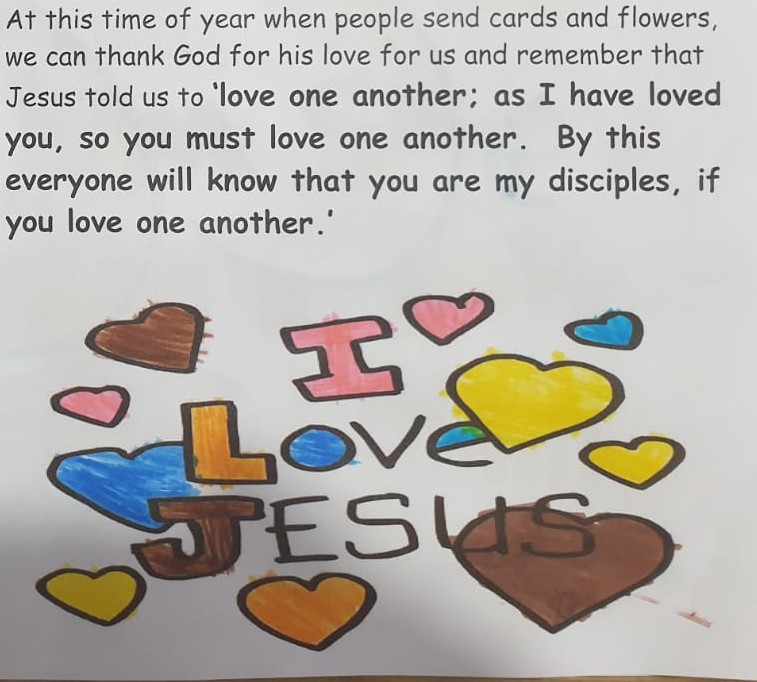 At this time of year when people send cards and flowers,
we can thank God for his love for us and remember that
Jesus told us to 'love one another; as I have loved
you, so you must love one another.  By this
everyone will know that you are my disciples, if
you love one another.'
I
Love
JESUS